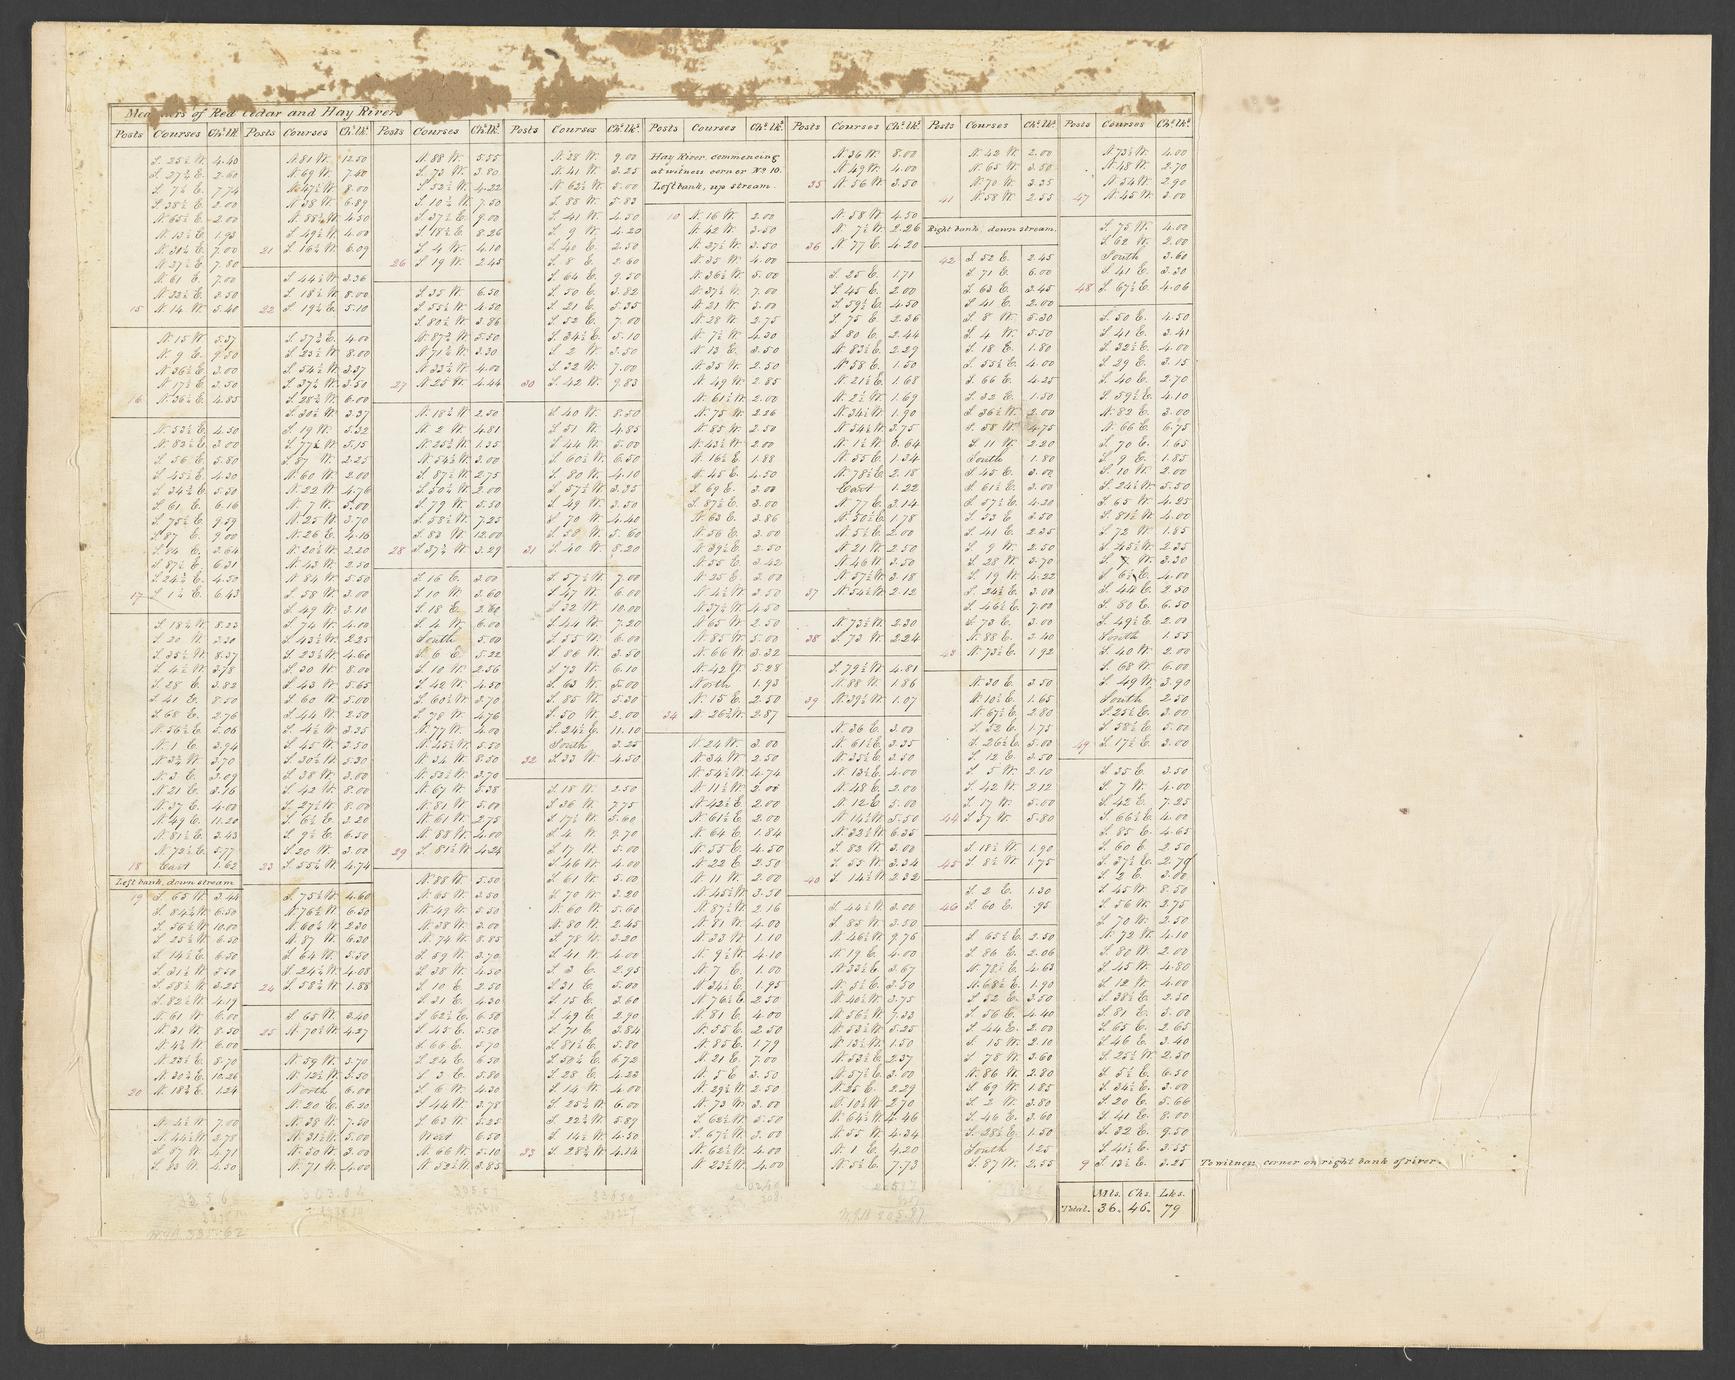 Meanders of Red Cedar and Hay Rivers
Posts Courses Chs. lks.
S. 25½ W. 4.40
S. 7½ E. 7.74
S. 38½ E. 2.00
N. 65½ E. 2.00
N. 13½ E. 1.93
N. 31½ E. 7.00
N. 37½ E. 7.80
N. 61 E. 7.00
N. 32½ E. 2.50
15 N. 14 W. 3.40
N. 15 W. 5.37
N. 9 E. 9.50
N. 36½ E. 3.00
N. 17½ E. 3.50
16 N. 36½ E. 4.85
N. 53½ E. 4.50
N. 83½ E. 3.00
S. 56 E. 5.80
S. 45½ E. 4.30
S. 34½ E. 5.30
S. 61 E. 6.16
S. 75½ E. 9.59
S. 87 E. 9.00
S. 87½ E. 6.31
S. 24½ E. 4.50
17 S. 1½ E. 6.43
S. 18½ W. 8.23
S. 20 W. 3.30
S. 35½ W. 8.37
S. 4½ W. 3.78
S. 28 E. 3.82
S. 41 E. 8.50
S. 68 E. 2.76
N. 56½ E. 5.06
N. 1 E. 3.94
N. 3½ W. 3.70
N. 3 E. 3.09
N. 21 E. 3.16
N. 37 E. 4.00
N. 49 E. 11.20
N. 81½ E. 3.43
N. 72½ E. 5.77
18 East 1.62
Left bank, down stream.
19 S. 65 W. 3.44
S. 84½ W. 6.50
S. 56½ W. 10.00
S. 25½ W. 6.50
S. 14½ E. 6.50
S. 31½ W. 8.50
S. 58½ W. 3.25
S. 82½ W. 4.19
N. 61 W. 6.00
N. 31 W. 8.50
N. 4½ W. 6.00
N. 23½ E. 8.70
N. 30½ E. 10.26
20 N. 18½ E. 1.24
N. 4½ W. 7.00
N. 44½ W. 2.78
S. 87 W. 4.71
S. 83 W. 4.50
Posts Courses Chs. lks.
N. 81 W. 12.50
N. 69 W. 7.40
N. 47½ W. 8.00
N. 38 W. 6.89
N. 88½ W. 4.50
S. 49½ W. 4.00
21 S. 16½ W. 6.09
S. 44½ W. 3.36
S. 18½ W. 8.00
22 S. 19½ E. 5.10
S. 37½ E. 4.00
S. 23½ W. 8.00
S. 54½ W. 3.37
S. 37½ W. 3.50
S. 28½ W. 6.00
S. 30½ W. 3.37
S. 19 W. 5.32
S. 77½ W. 5.15
S. 87 W. 2.25
N. 60 W. 2.00
N. 22 W. 4.76
N. 7 W. 5.00
N. 25 W. 3.70
N. 26 E. 4.16
N. 20½ W. 2.20
N. 43 W. 2.50
N. 84 W. 5.50
S. 58 W. 3.00
S. 49 W. 3.10
S. 74 W. 4.00
S. 43½ W. 2.25
S. 23½ W. 4.60
S. 30 W. 8.00
S. 43 W. 5.65
S. 60 W. 5.00
S. 44 W. 2.50
S. 4½ W. 3.25
S. 45 W. 2.50
S. 30½ W. 5.30
S. 38 W. 3.00
S. 42 W. 8.00
S. 27½ W. 8.00
S. 6½ E. 3.20
S. 9½ E. 6.50
S. 20 W. 3.00
23 S. 55½ W. 4.74
S. 75½ W. 4.60
N. 76½ W. 6.50
N. 60½ W. 2.30
N. 87 W. 6.30
S. 64 W. 5.50
S. 24½ W. 4.08
24 S. 58½ W. 1.88
S. 65 W. 3.40
25 N. 70½ W. 4.27
N. 59 W. 3.70
N. 12½ W. 3.50
North 6.00
N. 20 E. 6.20
N. 38 W. 7.50
N. 31½ W. 5.00
N. 50 W. 3.00
N. 71 W. 4.00
Posts Courses Chs. lks.
N. 88 W. 5.55
S. 73 W. 3.80
S. 52½ W. 4.22
S. 10½ W. 7.50
S. 37½ E. 9.00
S. 18½ E. 8.26
S. 4 W. 4.10
26 S. 19 W. 2.45
S. 35 W. 6.50
S. 55½ W. 4.50
S. 80½ W. 3.86
N. 87½ W. 5.50
N. 71½ W. 3.30
N. 32½ W. 4.00
27 N. 25 W. 4.44
N. 18½ W. 2.50
N. 2 W. 4.81
N. 25½ W. 1.35
N. 54½ W. 3.00
S. 87½ W. 2.75
S. 50½ W. 2.00
S. 79 W. 5.50
S. 58½ W. 7.25
S. 83 W. 12.00
28 S. 37½ W. 3.29
S. 16 E. 3.00
S. 10 W. 3.60
S. 18 E. 2.80
S. 4 W. 6.00
South 5.00
S. 6 E. 5.22
S. 10 W. 2.56
S. 42 W. 4.50
S. 60½ W. 3.70
S. 78 W. 4.76
N. 77 W. 4.00
N. 45½ W. 5.50
N. 34 W. 8.50
N. 52½ W. 3.70
N. 67 W. 5.38
N. 81 W. 5.00
N. 61 W. 2.75
N. 88 W. 4.00
29 S. 81½ W. 4.24
N. 88 W. 5.50
N. 65 W. 3.50
N. 49 W. 3.50
N. 38 W. 3.00
N. 74 W. 8.85
S. 59 W. 3.70
S. 38 W. 4.50
S. 10 E. 2.50
S. 31 E. 4.30
S. 62½ E. 6.50
S. 45 E. 5.50
S. 66 E. 5.70
S. 24 E. 6.50
S. 3 E. 5.80
S. 6 W. 4.30
S. 44 W. 3.78
S. 63 W. 5.25
West 6.50
N. 66 W. 5.10
N. 52½ W. 3.85
Posts Courses Chs. lks.
N. 28 W. 9.00
N. 41 W. 3.25
N. 62½ W. 5.00
S. 88 W. 5.83
S. 41 W. 4.50
S. 9 W. 4.20
S. 40 E. 2.50
S. 8 E. 2.60
S. 64 E. 9.50
S. 50 E. 3.82
S. 21 E. 5.35
S. 52 E. 7.00
S. 34½ E. 5.10
S. 2 W. 3.50
S. 32 W. 7.00
30 S. 42 W. 9.83
S. 40 W. 8.50
S. 51 W. 4.85
S. 44 W. 5.00
S. 60½ W. 6.50
S. 80 W. 4.10
S. 57½ W. 3.35
S. 49 W. 3.50
S. 70 W. 4.40
S. 58 W. 5.60
31 S. 40 W. 8.20
S. 57½ W. 7.00
S. 47 W. 6.00
S. 32 W. 10.00
S. 44 W. 7.20
S. 55 W. 6.00
S. 86 W. 3.50
S. 73 W. 6.10
S. 63 W. 5.00
S. 85 W. 5.30
S. 50 W. 2.00
S. 24½ E. 11.10
South 3.25
32 S. 33 W. 4.50
S. 18 W. 2.50
S. 36 W. 7.75
S. 17½ W. 5.60
S. 4 W. 9.70
S. 17 W. 5.00
S. 46 W. 4.00
S. 61 W. 5.00
S. 70 W. 3.20
N. 60 W. 5.60
N. 80 W. 2.45
S. 78 W. 3.20
S. 41 W. 4.00
S. 3 E. 2.95
S. 31 E. 5.00
S. 15 E. 3.60
S. 49 E. 2.90
S. 71 E. 3.84
S. 81½ E. 5.80
S. 50½ E. 6.72
S. 28 E. 4.23
S. 14 W. 4.00
S. 25½ W. 6.00
S. 22½ W. 5.89
S. 14½ W. 4.50
33 S. 28½ W. 4.14
Posts Courses Chs. lks.
Hay River, commencing
at witness corner No. 10.
Left bank, up stream.
10 N. 16 W. 2.00
N. 42 W. 3.50
N. 27½ W. 3.50
N. 35 W. 4.00
N. 36½ W. 5.00
N. 37½ W. 7.00
N. 21 W. 5.00
N. 28 W. 2.75
N. 7½ W. 4.30
N. 13 E. 3.50
N. 35 W. 2.50
N. 49 W. 2.85
N. 61½ W. 2.00
N. 75 W. 2.26
N. 85 W. 2.50
N. 43½ W. 2.00
N. 16½ E. 1.88
N. 45 E. 4.50
S. 69 E. 3.00
S. 87½ E. 3.00
N. 63 E. 3.86
N. 56 E. 3.00
N. 39½ E. 2.50
N. 55 E. 3.42
N. 25 E. 3.00
N. 4½ W. 3.50
N. 37½ W. 4.50
N. 65 W. 2.50
N. 85 W. 5.00
N. 66 W. 3.32
N. 42 W. 5.28
North 1.93
N. 15 E. 2.50
34 N. 26½ W. 2.87
N. 24 W. 3.00
N. 34 W. 2.50
N. 54½ W. 4.74
N. 11½ W. 2.00
N. 42½ E. 2.00
N. 61½ E. 2.00
N. 64 E. 1.84
N. 55 E. 4.50
N. 22 E. 2.50
N. 11 W. 2.00
N. 45½ W. 3.50
N. 87½ W. 2.16
N. 81 W. 4.00
N. 33 W. 1.10
N. 9½ W. 4.10
N. 7 E. 1.00
N. 34½ E. 1.95
N. 76½ E. 2.50
N. 81 E. 4.00
N. 55 E. 2.50
N. 85 E. 1.79
N. 21 E. 7.00
N. 5 E. 3.50
N. 29½ W. 2.50
N. 73 W. 3.00
S. 62½ W. 5.50
S. 67½ W. 3.00
N. 62½ W. 4.00
N. 23½ W. 4.00
Posts Courses Chs. lks.
N. 36 W. 8.00
N. 49 W. 4.00
35 N. 56 W. 3.50
N. 58 W. 4.50
N. 7½ W. 2.26
36 N. 77 E. 4.20
S. 25 E. 1.71
S. 45 E. 2.00
S. 59½ E. 4.50
S. 75 E. 2.36
S. 80 E. 2.44
N. 83½ E. 2.29
N. 58 E. 1.50
N. 21½ E. 1.68
N. 2½ W. 1.69
N. 34½ W. 1.90
N. 54½ W. 3.75
N. 1½ W. 6.64
N. 35 E. 1.34
N. 78½ E. 2.18
East 1.22
N. 77 E. 3.14
N. 50½ E. 1.78
N. 5½ E. 2.00
N. 21 W. 2.50
N. 46 W. 3.50
N. 57½ W. 3.18
37 N. 54½ W. 2.12
N. 73½ W. 2.30
38 S. 73 W. 2.24
S. 79½ W. 4.81
N. 88 W. 1.86
39 N. 39½ W. 1.07
N. 36 E. 3.00
N. 61½ E. 3.35
N. 35½ E. 3.50
N. 13½ E. 4.00
N. 48 E. 2.00
N. 12 E. 5.00
N. 14½ W. 5.50
N. 32½ W. 6.35
S. 82 W. 3.00
S. 55 W. 3.34
40 S. 14½ W. 2.32
S. 44½ W. 3.00
S. 85 W. 3.50
N. 46½ W. 9.76
N. 19 E. 4.00
N. 33½ E. 3.67
N. 5½ E. 3.50
N. 40½ W. 3.75
N. 56½ W. 7.33
N. 53½ W. 5.25
N. 13½ W. 1.50
N. 53½ E. 2.37
N. 57½ E. 3.00
N. 25 E. 2.29
N. 10½ W. 2.70
N. 64½ W. 4.46
N. 55 W. 4.34
N. 1 E. 4.20
N. 5½ E. 7.73
Posts Courses Chs. lks.
N. 42 W. 2.00
N. 65 W. 3.50
N. 70 W. 3.35
41 N. 58 W. 2.55
Right bank, down stream.
42 S. 52 E. 2.45
S. 71 E. 6.00
S. 63 E. 3.45
S. 41 E. 2.00
S. 8 W. 5.30
S. 4 W. 5.50
S. 18 E. 1.80
S. 55½ E. 4.00
S. 66 E. 4.25
S. 32 E. 1.50
S. 36½ W. 2.00
S. 58 W. 4.75
S. 11 W. 2.20
South 1.80
S. 45 E. 3.00
S. 61½ E. 3.00
S. 57½ E. 4.20
S. 33 E. 3.50
S. 41 E. 2.35
S. 9 W. 2.50
S. 28 W. 3.70
S. 19 W. 4.22
S. 24½ E. 3.00
S. 46½ E. 7.00
S. 73 E. 3.00
N. 88 E. 3.40
43 N. 73½ E. 1.92
N. 30 E. 3.50
N. 10½ E. 1.65
N. 67½ E. 2.80
S. 52 E. 1.75
S. 26½ E. 3.00
S. 12 E. 3.50
S. 5 W. 2.10
S. 42 W. 2.12
S. 17 W. 5.00
44 S. 37 W. 5.80
S. 18½ W. 1.90
45 S. 8½ W. 1.75
S. 2 E. 1.30
46 S. 60 E. .95
S. 65½ E. 2.50
S. 86 E. 2.06
N. 78½ E. 4.63
N. 68½ E. 1.90
S. 52 E. 3.50
S. 56 E. 4.40
S. 44 E. 2.00
S. 15 W. 2.10
S. 78 W. 3.60
N. 86 W. 2.80
S. 69 W. 1.85
S. 2 W. 3.80
S. 46 E. 3.60
S. 28½ E. 1.50
South 1.25
S. 87 W. 2.55
Posts Courses Chs. lks.
N. 73½ W. 4.00
N. 48 W. 2.70
N. 34 W. 2.90
47 N. 45 W. 3.00
S. 75 W. 4.00
S. 62 W. 2.00
South 3.60
S. 41 E. 3.30
48 S. 67½ E. 4.06
S. 50 E. 4.50
S. 41 E. 3.41
S. 32½ E. 4.00
S. 29 E. 3.15
S. 40 E. 2.70
S. 59½ E. 4.10
N. 82 E. 3.00
N. 66 E. 6.75
S. 70 E. 1.65
S. 9 E. 1.85
S. 10 W. 2.00
S. 24½ W. 5.50
S. 65 W. 4.25
S. 81½ W. 4.00
S. 72 W. 1.85
S. 45½ W. 2.35
S. 6½ E. 4.00
S. 44 E. 2.50
S. 80 E. 6.50
S. 49½ E. 2.00
South 1.55
S. 40 W. 2.00
S. 68 W. 6.00
S. 49 W. 3.90
South 2.50
S. 25½ E. 3.00
S. 58½ E. 5.00
49 S. 17½ E. 3.00
S. 35 E. 3.50
S. 7 W. 4.00
S. 42 E. 7.25
S. 66½ E. 4.00
S. 85 E. 4.65
S. 60 E. 2.50
S. 37½ E. 2.70
S. 2 E. 3.00
S. 45 W. 8.50
S. 56 W. 2.75
S. 70 W. 2.50
N. 72 W. 4.10
S. 80 W. 2.00
S. 45 W. 4.80
S. 12 W. 4.00
S. 38½ E. 2.50
S. 81 E. 3.00
S. 65 E. 2.65
S. 46 E. 3.40
S. 25½ W. 2.50
S. 5½ E. 6.50
S. 34½ E. 3.00
S. 20 E. 5.66
S. 41 E. 8.00
S. 32 E. 9.50
S. 41½ E. 3.55
9 S. 13½ E. 3.25 To witness corner on right bank of river.
Mls. Chs. Lks.
Total. 36. 46. 79